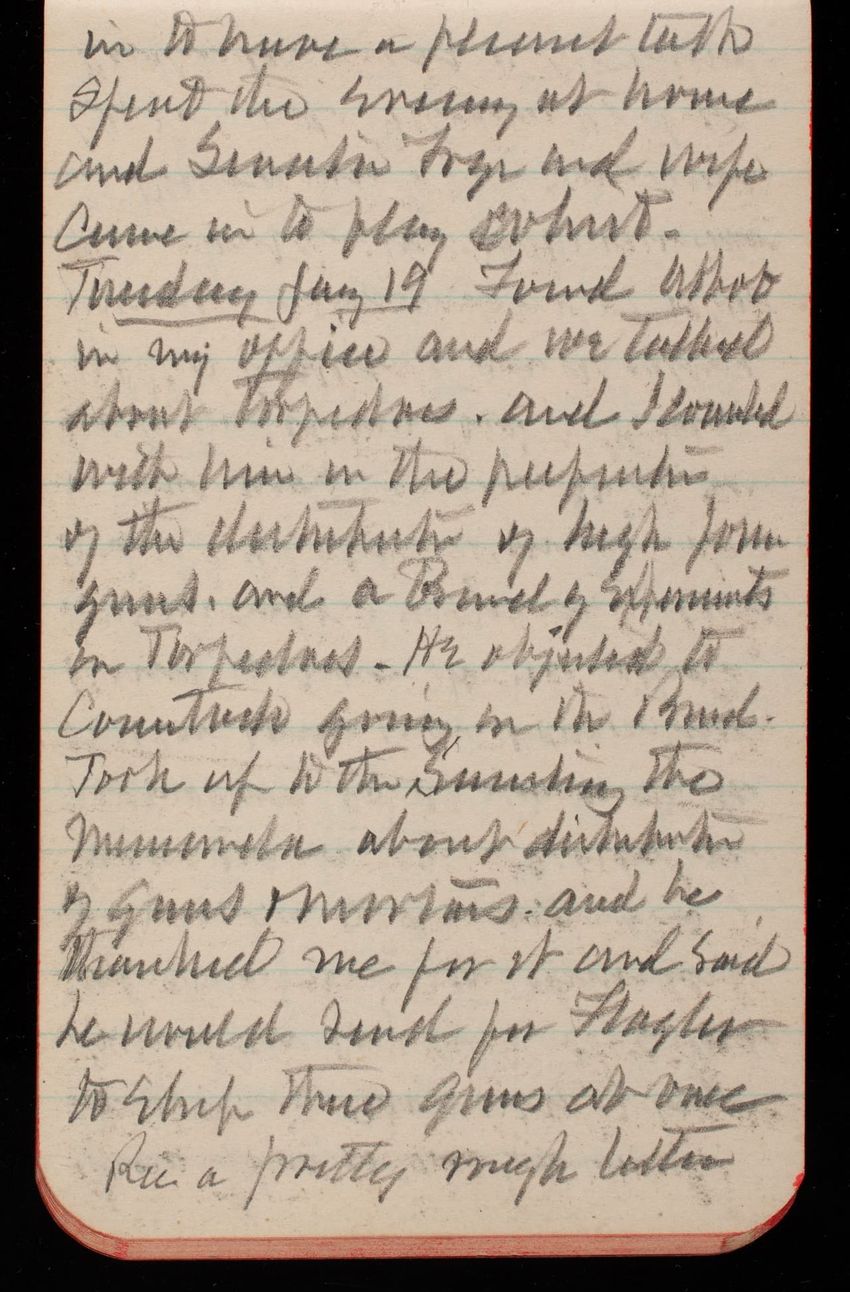 in to have a pleasant talk
Spent the evening at home
and Senator Frye and wife
Came in to play whist.
Tuesday Jany 19 Found Abbot
in my office and we talked
about Torpedoes. and I
with him in the
of the distribution of high power
guns. and a Board of Experiments
in Torpedoes - He objected to
Comstock going on the Board.
Took up to the Secretary the
Memoranda about distribution
of guns & mortars. and he
thanked me for it and said
he would send for Flagler
to ship three guns at once
Rec a pretty rough letter